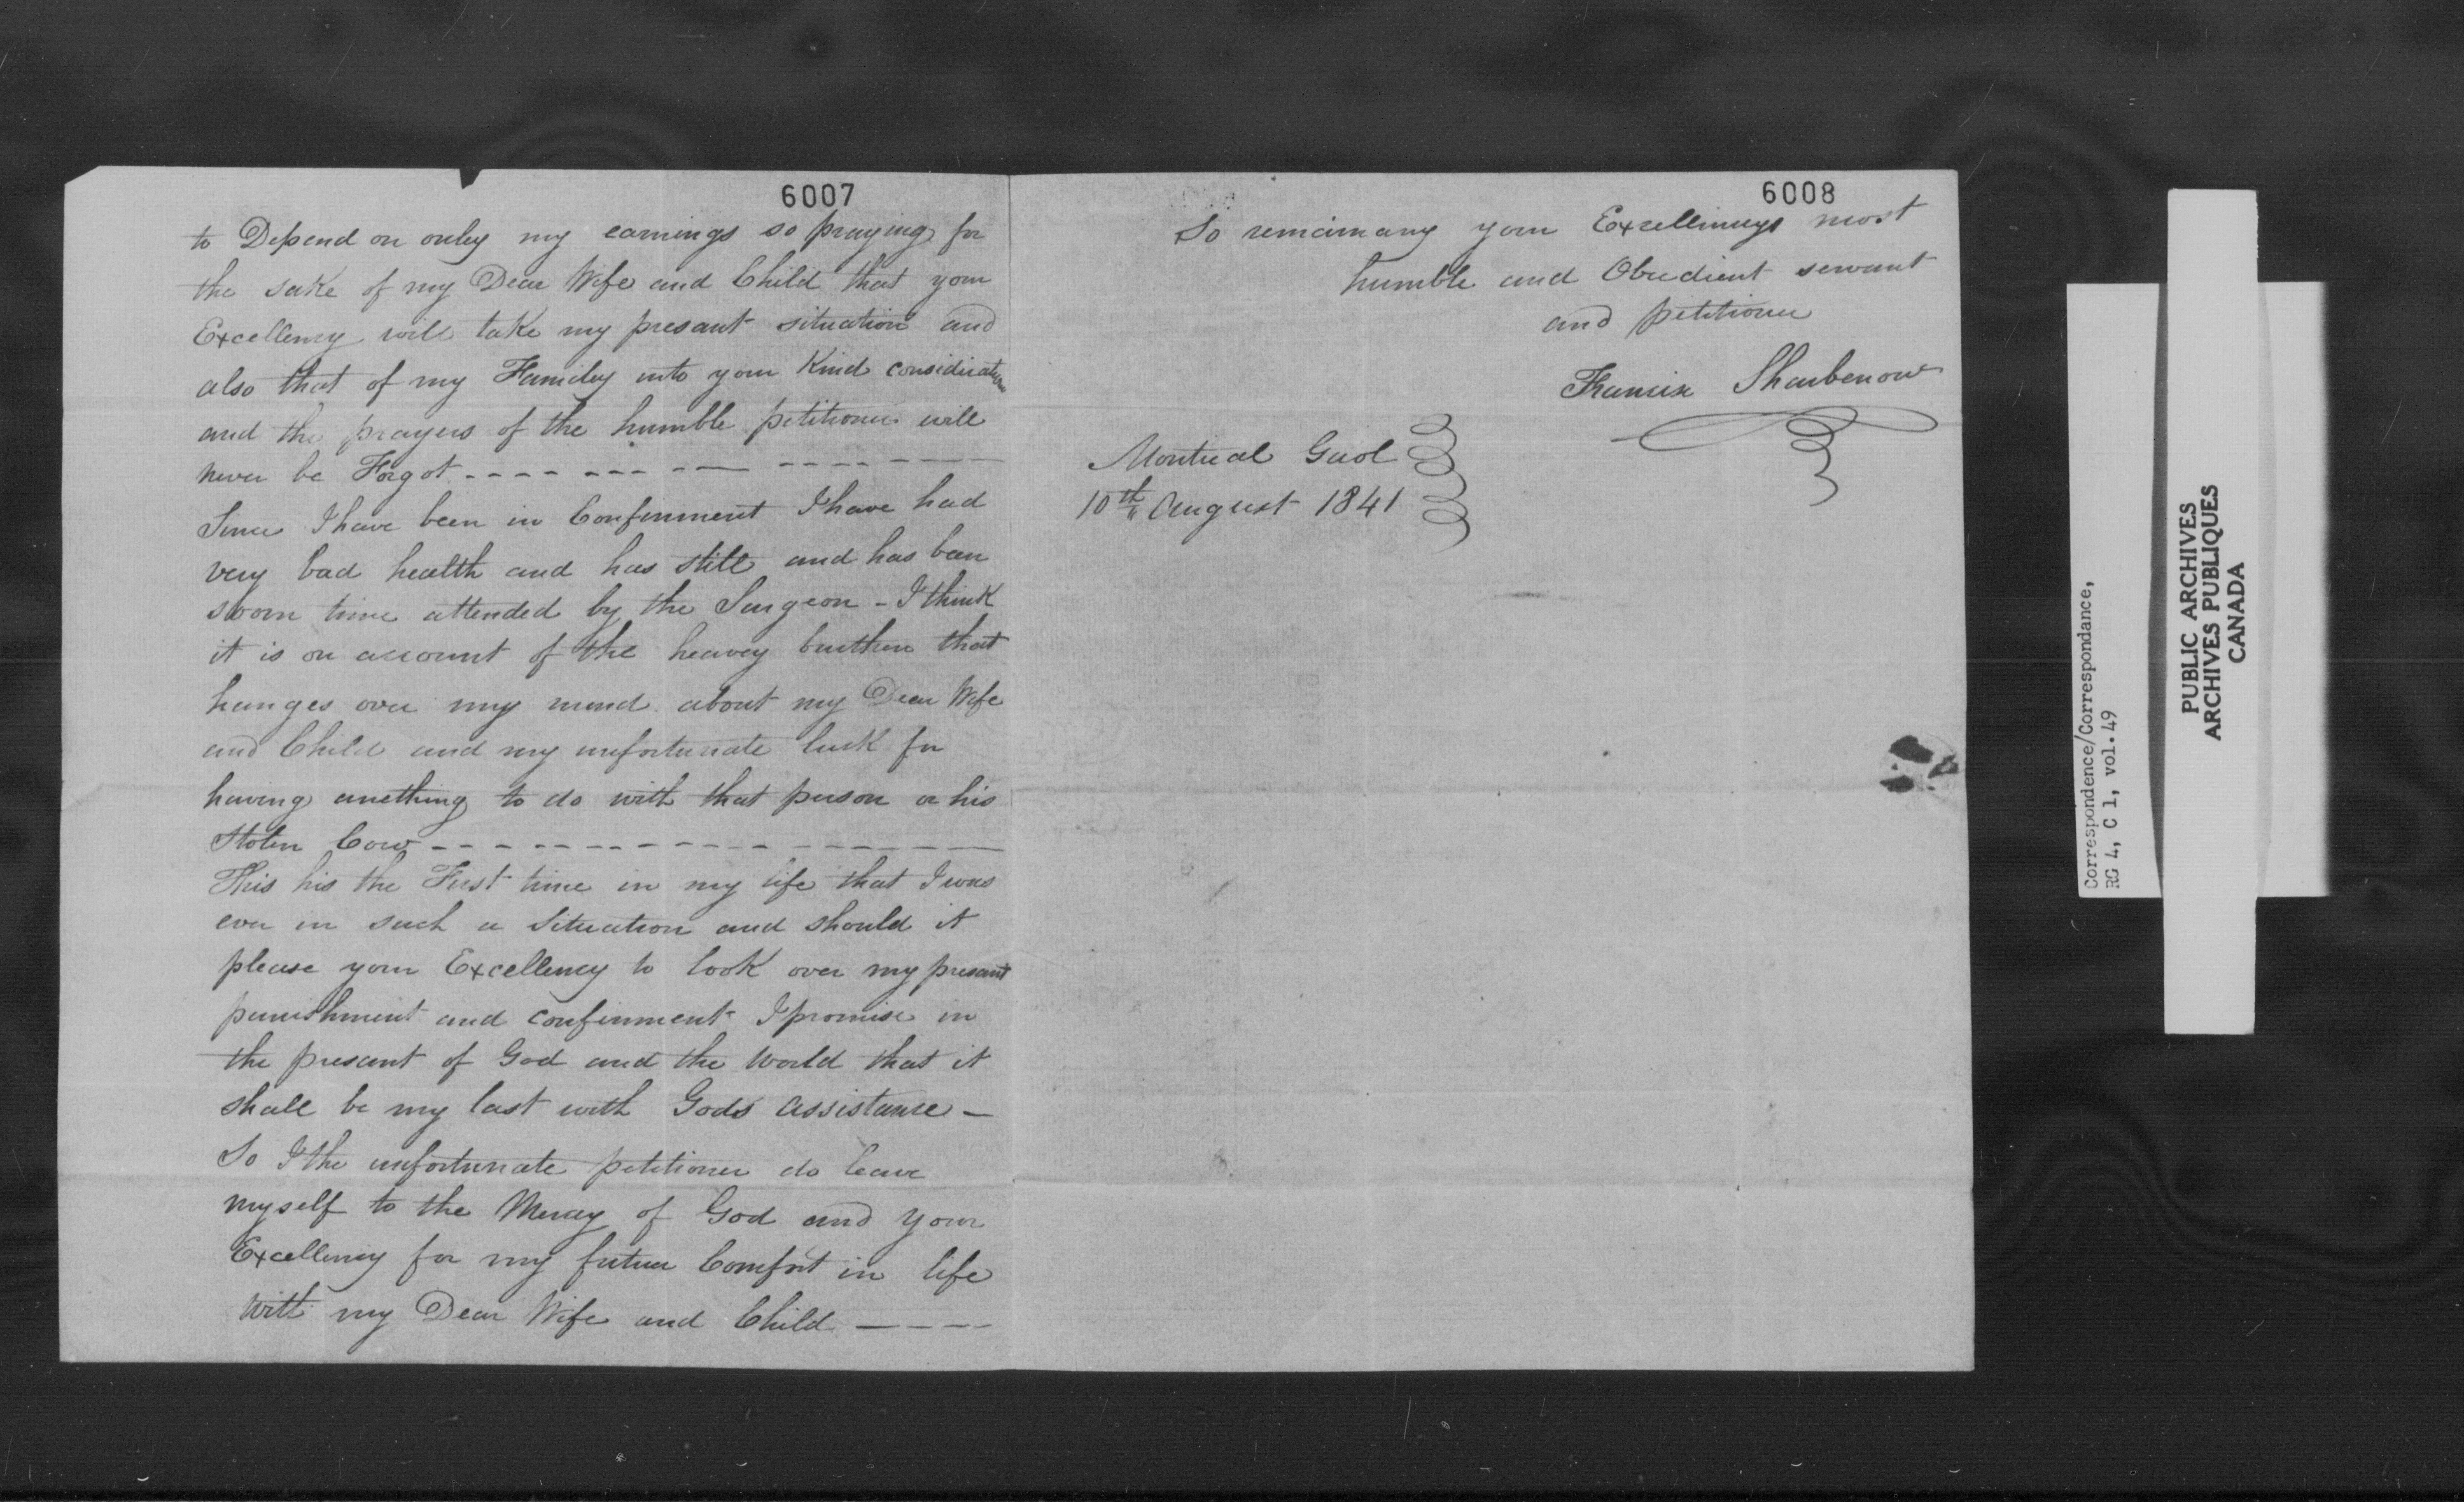 6007
to Depend on onley my earnings so praying for
the sake of my Dear Wife and Child that your
Excellency will take my presant situation and
also that of my Famiely into your Kind consideration
and the prayers of the humble petitioner will
never be Forgot
Since I have been in Confinment I have had
very bad health and has still and has been
soom time attended by the Surgeon - I think
it is on account of the heavey burthen that
hanges over my mind about my Dear Wife
and Child and my unfortunate luck for
having anething to do with that person or his
Stolen Cow
This his the First time in my life that I was
ever in such a Situation and should it
please your Excellency to look over my presant
punishment and confinment I promise in
the presant of God and the World that it
shall be my last with Gods assistance -
So I the unfortunate petitioner do leave
myself to the Mercy of God and your
Excellency for my future Comfort in life
with my Dear Wife and Child
6008
So remaimang your Excellinceys most
humble and Obedient servant
and petitioner
Francix Sharbenow
Montreal Gaol
10th August 1841
Correspondence/Correspondance,
RG 4, C 1, vol. 49
PUBLIC ARCHIVES
ARCHIVES PUBLIQUES
CANADA